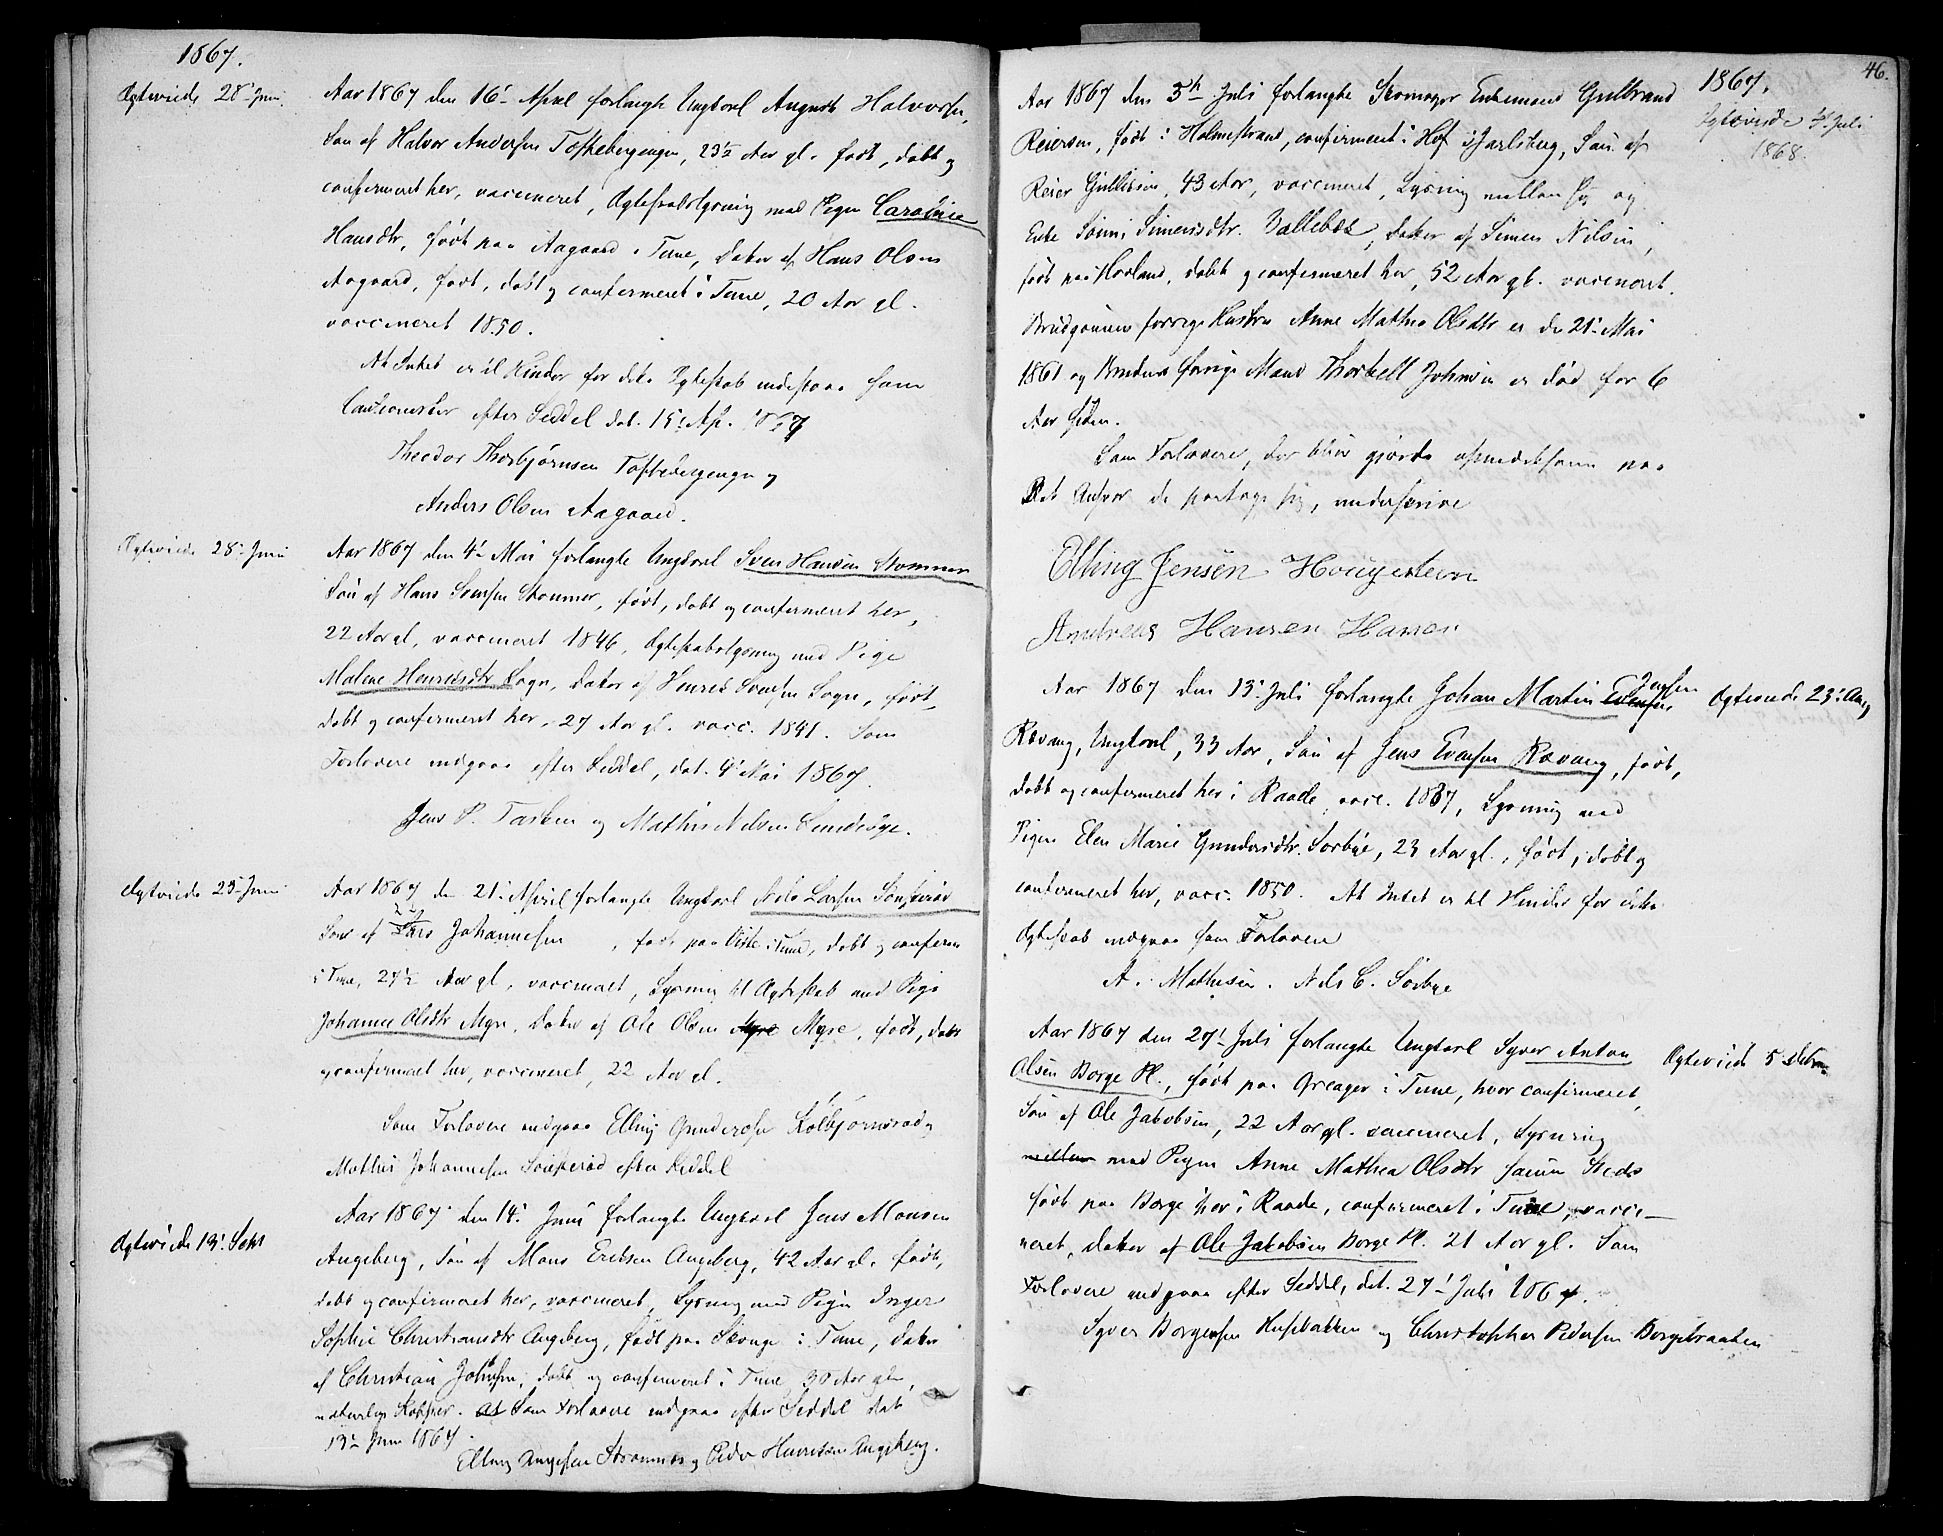 1867.
Ægteviede 28' Juni.
Aar 1867 den 16' April forlangte Ungkarl August Halvorsen,
Søn af Halvor Andersen Toskebergengen, 23½ Aar gl. født, døbt og
confirmeret her, vaccineret, Ægteskabslysning med Pigen Caroline
Hansdtr, født paa Aagaard i Tune, Datter af Hans Olsen
Aagaard, født, døbt og confirmeret i Tune, 20 Aar gl.
vaccineret 1850.
At Intet er til Hinder for dette Ægteskab indestaae som
Cautionister efter Seddel dat. 15' Ap. 1867
Theodor Thorbjørnsen og
Anders Olsen Aagaard.
Ægteviede 28' Juni
Aar 1867 den 4' Mai forlangte Ungkarl Sven Hansen Stommen
Søn af Hans Svensen Stommen, født, døbt og confirmeret her,
22 Aar gl, vaccineret 1846, Ægteskabslysning med Pige
Malene Henriksdtr Sogn, Datter af Henrik Svensen Sogn, født,
døbt og confirmeret her, 27 Aar gl. vacc. 1841. Som
Forlovere indgaae efter Seddel, dat. 4' Mai 1867.
Jens P. Tasken og Mathis Nilsen
Ægteviede 23' Juni
Aar 1867 den 21' April forlangte Ungkarl Nils Larsen
Søn af Lars Johannesen, født paa Viste i Tune, døbt og conferm
i Tune, 27½ Aar gl, vaccineret, Lysning til Ægteskab med Pige
Johanne Olsdtr Myre, Datter af Ole Olsen Myre Myre, født, døbt
og confirmeret her, vaccineret, 22 Aar gl.
Som Forlovere indgaae Elling Gundersen Kolbjørnsrød og
Mathis Johannesen efter Seddel
Ægteviede 13' Sept
Aar 1867 den 14' Juni forlangte Ungkarl Jens Monsen
Augeberg, Søn af Mons Eriksen Augeberg, 42 Aar gl. født,
døbt og confirmeret her, vaccineret, Lysning med Pigen Inger
Sophie Christiansdtr Augeberg, født paa Skouge i Tune, Datter
af Christian Johnsen, døbt og confirmeret i Tune, 30 Aar gl,
naturlige Kopper. at Som Forlovere indgaae efter Seddel dat
13' Juni 1867.
Elling og Peder Henriksen Augeberg.
46.
1867.
Ægteviede Juli
1868.
Aar 1867 den 5te Juli forlangte Skomager Enkemand Gulbrand
Reiersen, født i Holmestrand, confirmeret i Hof i Jarlsberg, Søn af
Reier Gullixsen, 43 Aar, vaccineret, Lysning mellem sig og
Enke Simensdtr. Vallebæk, Datter af Simen Nilsen,
født paa Hovland, døbt og confirmeret her, 52 Aar gl. vaccineret.
Brudgommens forrige Hustru Anne Mathea Olsdtr er død 21' Mai
1861 og Brudens forrige Mand Thorkell Johnsen er død for 6
Aar siden.
Som Forlovere, der blive gjorde opmærksomme paa
det Ansvar de paatage sig, underskrive
Elling Jensen Hougesteen
Andreas Hansen Haren
Ægteviede 23' Aug
Aar 1867 den 13' Juli forlangte Johan Martin Evensen, Jensen
Rævaug, Ungkarl, 33 Aar, Søn af Jens Evensen Rævaug, født,
døbt og confirmeret her i Raade, vacc. 1837, Lysning med
Pigen Elen Marie Gundersdtr. Sørbye, 23 Aar gl., født, døbt og
confirmeret her, vacc. 1850. At Intet er til Hinder for dette
Ægteskab indgaae som Forlovere
A. Mathiesen. Nils C. Sørbye
Ægteviede 5
Aar 1867 den 27' Juli forlangte Ungkarl Syver Anton
Olsen Borge Pl., født paa Greager i Tune, hvor confirmeret,
Søn af Ole Jakobsen, 22 Aar gl. vaccineret, Lysning
mellem med Pigen Anne Mathea Olsdtr samme Steds
født paa Borge her i Raade, confirmeret i Tune, vacci-
neret, Datter af Ole Jakobsen Borge Pl. 21 Aar gl. Som
Forlovere indgaae efter Seddel, dat. 27' Juli 1867.
Syver Borgersen Husebakken og Christopher Pedersen Borgebraaten